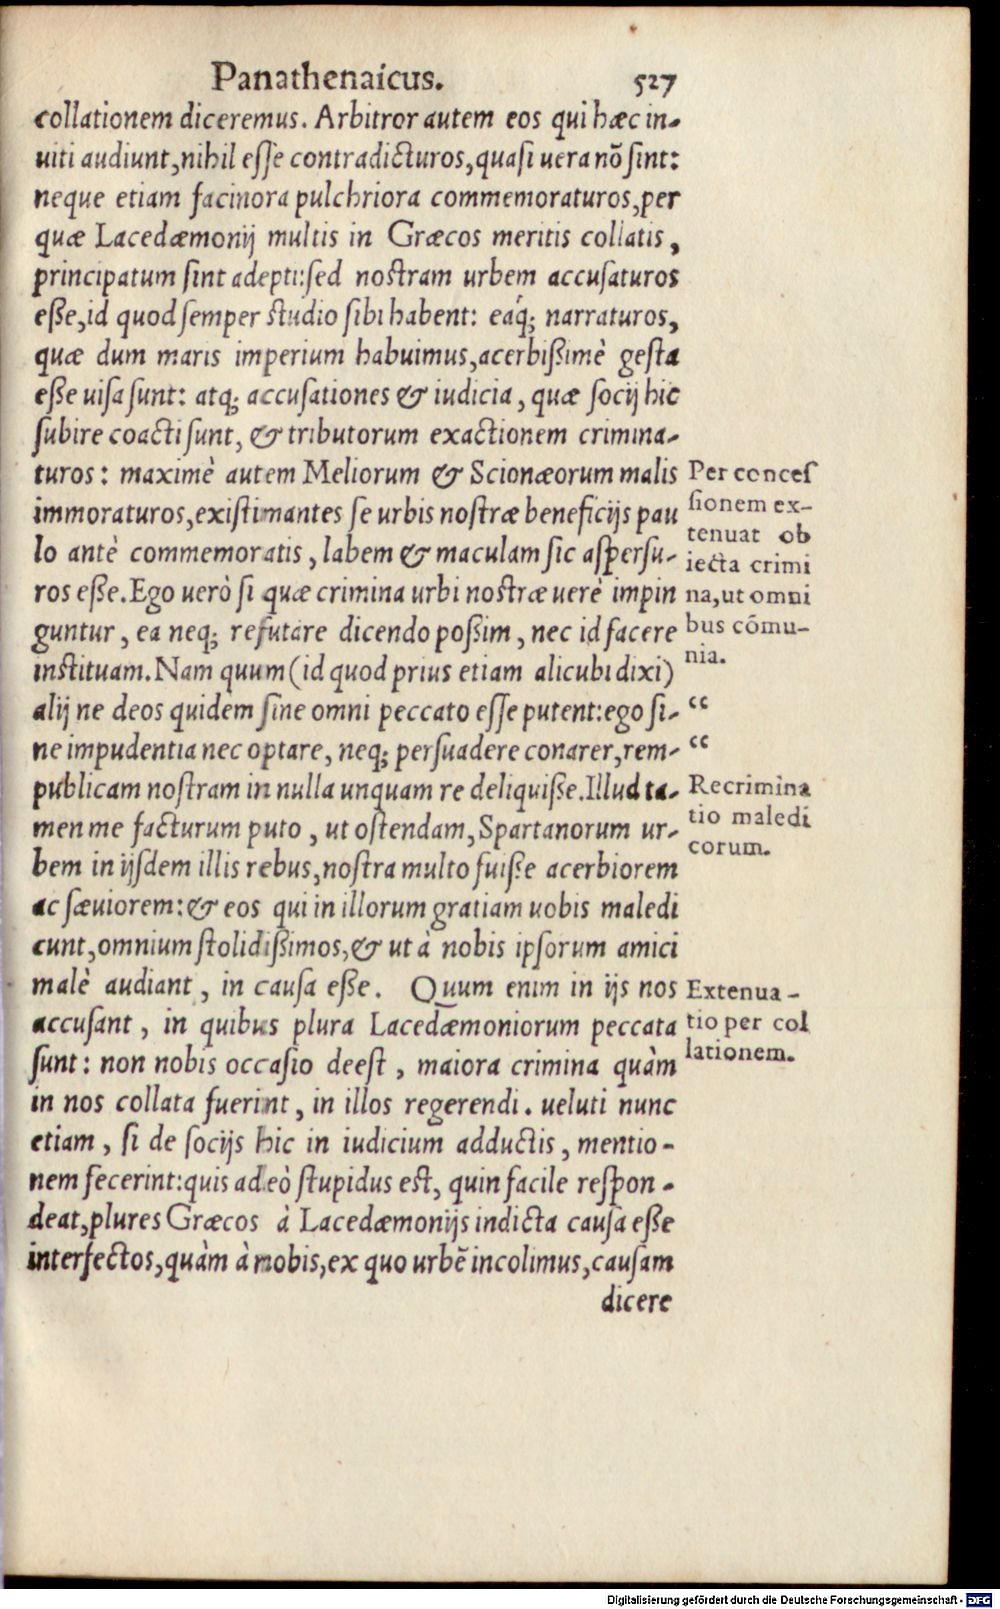 Panathenaicus. 527
collationem diceremus. Arbitror autem eos qui hæc in-
uiti audiunt, nihil eſſe contradicturos, quaſi uera nõ ſint:
neque etiam facinora pulchriora commemoraturos, per
quæ Lacedæmonij multis in Græcos meritis collatis,
principatum ſint adepti: ſed noſtram urbem accuſaturos
eße, id quod ſemper ſtudio ſibi habent: eaq́; narraturos,
quæ dum maris imperium habuimus, acerbißimè geſta
eße uiſa ſunt: atq; accuſationes & iudicia, quæ ſocij hic
ſubire coacti ſunt, & tributorum exactionem crimina-
turos: maximè autem Meliorum & Scionæorum malis
immoraturos, exiſtimantes ſe urbis noſtræ beneficijs pau
lo antè commemoratis, labem & maculam ſic aſperſu-
ros eße. Ego uerò ſi quæ crimina urbi noſtræ uerè impin
guntur, ea neq; refutare dicendo poßim, nec id facere
inſtituam. Nam quum (id quod prius etiam alicubi dixi)
alij ne deos quidem ſine omni peccato eſſe putent: ego ſi-
ne impudentia nec optare, neq; perſuadere conarer, rem-
publicam noſtram in nulla unquam re deliquiße. Illud ta-
men me facturum puto, ut oſtendam, Spartanorum ur-
bem in ijſdem illis rebus, noſtra multo fuiße acerbiorem
ac ſæuiorem: & eos qui in illorum gratiam uobis maledi
cunt, omnium ſtolidißimos, & ut à nobis ipſorum amici
malè audiant, in cauſa eße. Quum enim in ijs nos
accuſant, in quibus plura Lacedæmoniorum peccata
ſunt: non nobis occaſio deeſt, maiora crimina quàm
in nos collata fuerint, in illos regerendi. ueluti nunc
etiam, ſi de ſocijs hic in iudicium adductis, mentio-
nem fecerint: quis adeò ſtupidus eſt, quin facile reſpon-
deat, plures Græcos à Lacedæmonijs indicta cauſa eße
interfectos, quàm à nobis, ex quo urbē incolimus, cauſam
dicere
Per conceſ
ſionem ex-
tenuat ob
iecta crimi
na, ut omni
bus cõmu-
nia.
“
“
Recrimina
tio maledi
corum.
Extenua-
tio per col
lationem.
Digitalisierung gefördert durch die Deutsche Forschungsgemeinschaft - DFG